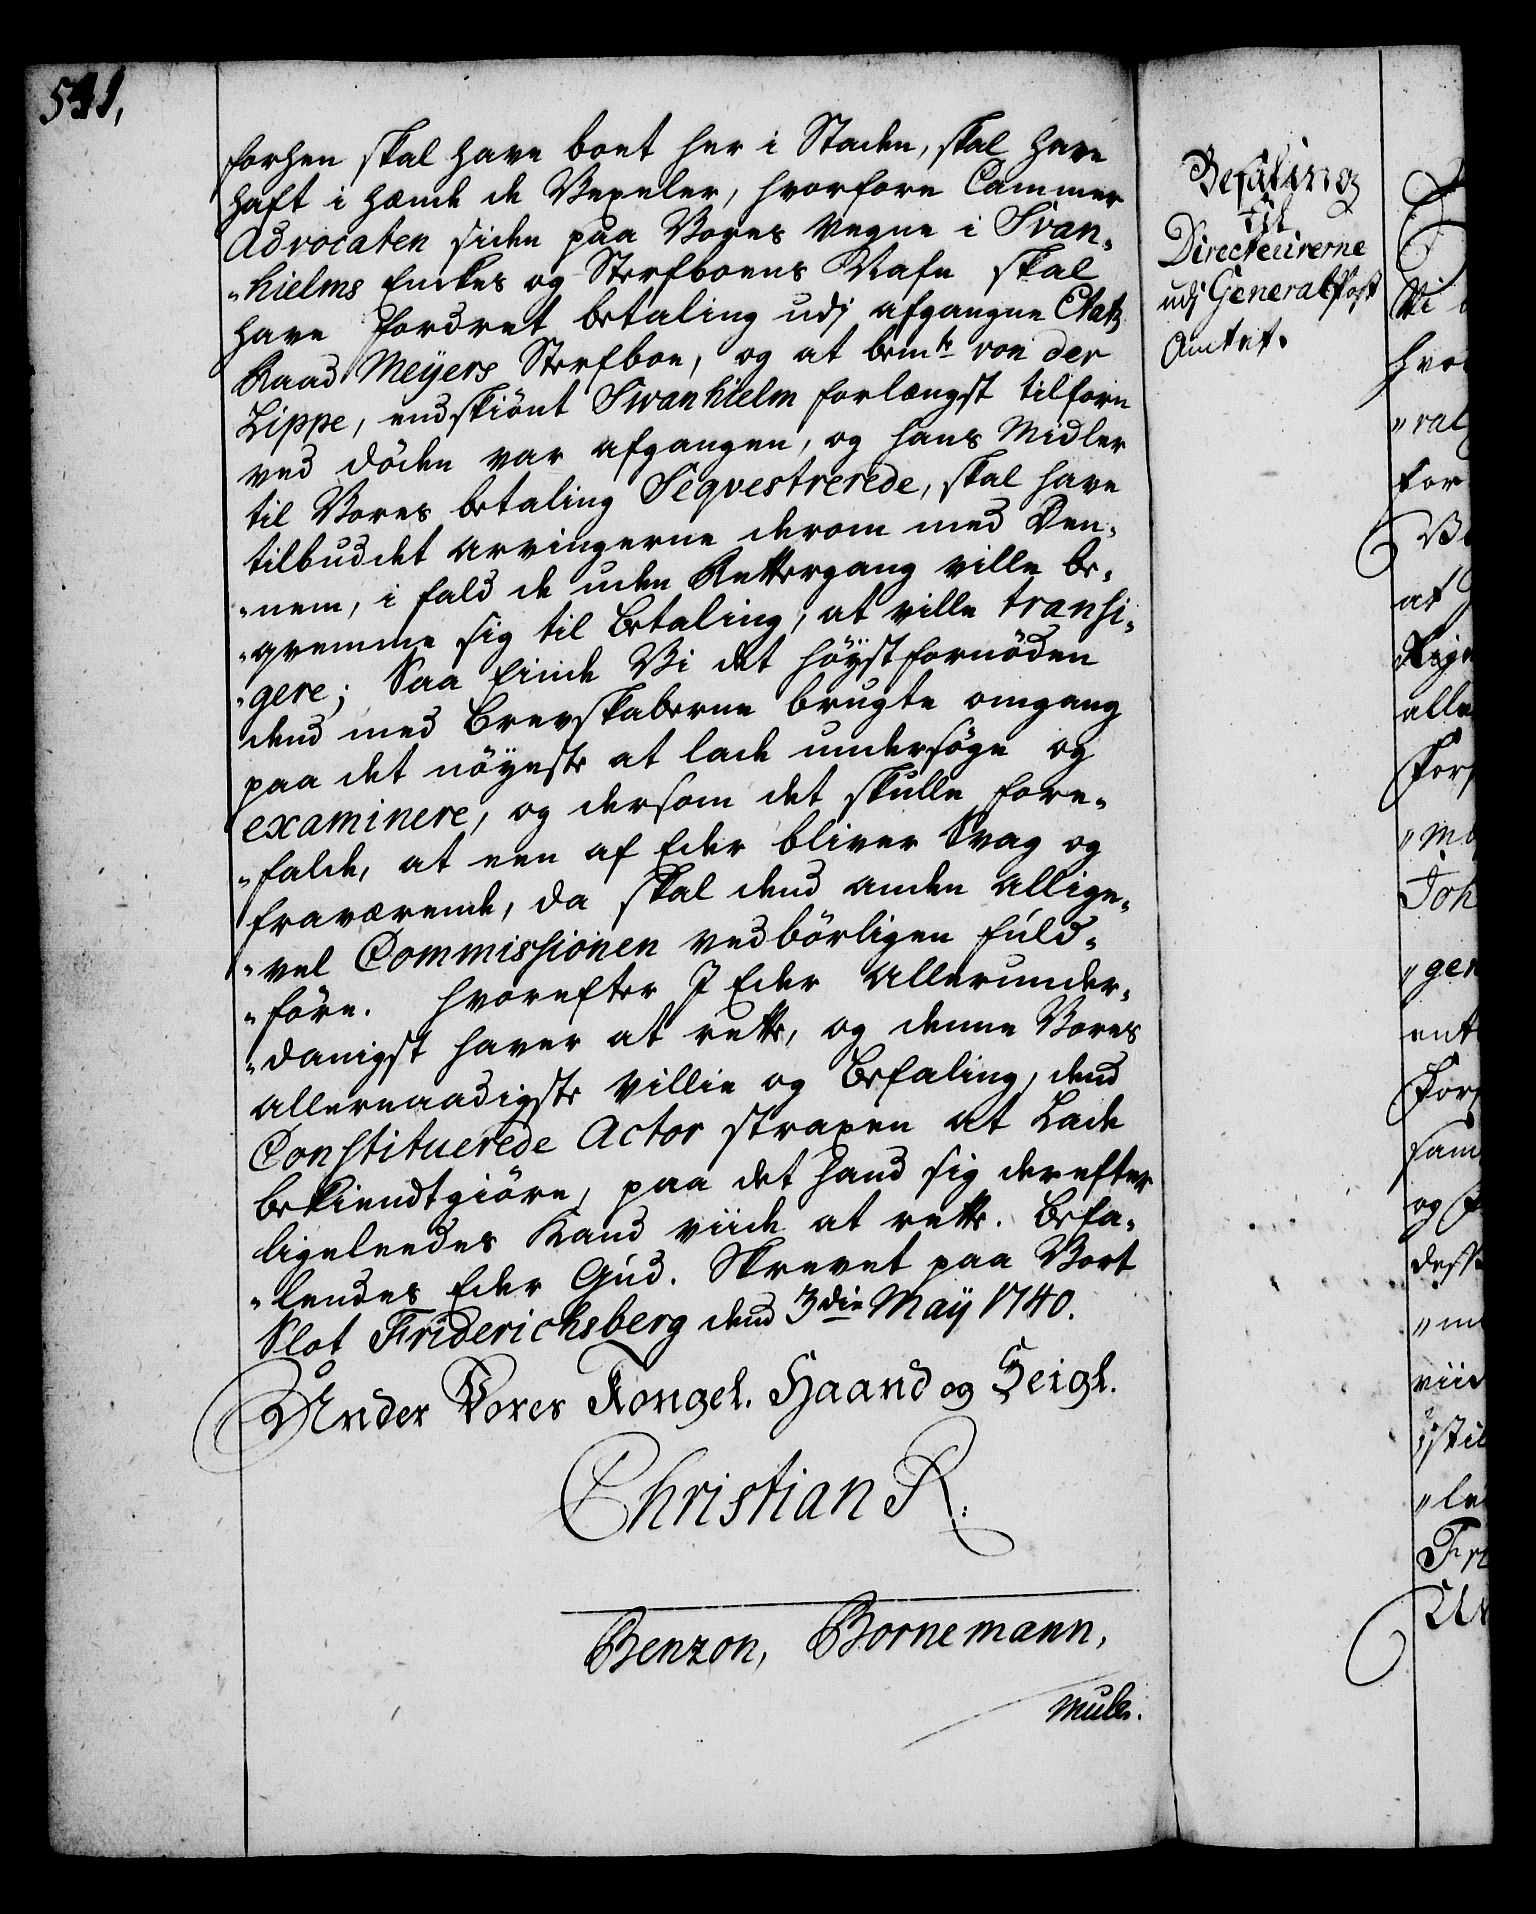 531,
forhen skal have boet her i Staden, skal have
haft i hænde de Vexeler, hvorfore Cammer
Advocaten siden paa Vores Vegne i Svan-
-hielms Enkes og Sterfboens Nafn skal
have fordret betaling udj afgangne Etatz
Raad Meÿers Sterfboe, og at bemte von der
Lippe, endskiönt Svanhielm forlængst tilforn
ved döden var afgangen, og hans Midler
til Vores betaling Seqvestrerede, skal have
tilbuddet Arvingerne derom med Den-
-nem, i fald de uden Rettergang ville be-
-qvemme sig til Betaling, at ville transi-
-gere; Saa finde Vi det höÿstfornöden
dend med Brevskaberne brugte omgang
paa det nöÿeste at lade undersöge og
examinere, og dersom det skulle fore-
-falde, at een af Eder bliver Svag og
fraværende, da skal dend anden allige-
-vel Commissionen vedbörligen fuld-
-före. Hvorefter I Eder Allerunder-
-danigst haver at rette, og denne Vores
allernaadigste Villie og Befaling, dend
Constituerede Actor straxen at Lade
bekiendtgiöre, paa det hand sig derefter
ligeleedes kand viide at rette. Befa-
-lendes Eder Gud. Skrevet paa Vort
Slot Friderichsberg dend 3die Maÿ 1740.
Under Vores Kongel. Haand og Zeigl.
Christian R.
Benzon, Bornemann,
Mule.
Befaling
til
Directeurerne
udj General Post
Amtet.